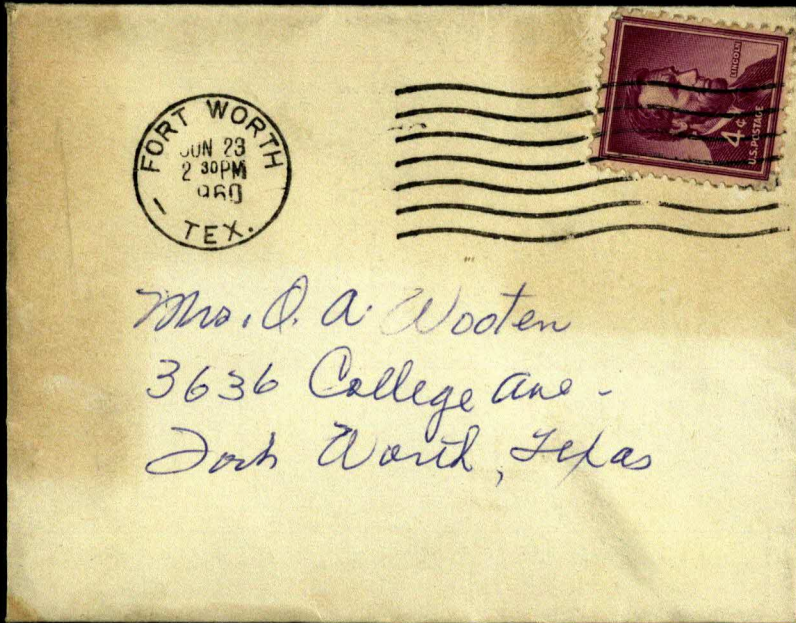 FORT WORTH
JUN 23
2 30PM
1960
TEX.
LINCOLN
4¢
U.S. POSTAGE
Mrs. O. A. Wooten
3636 College Ave-
Fort Worth, Texas